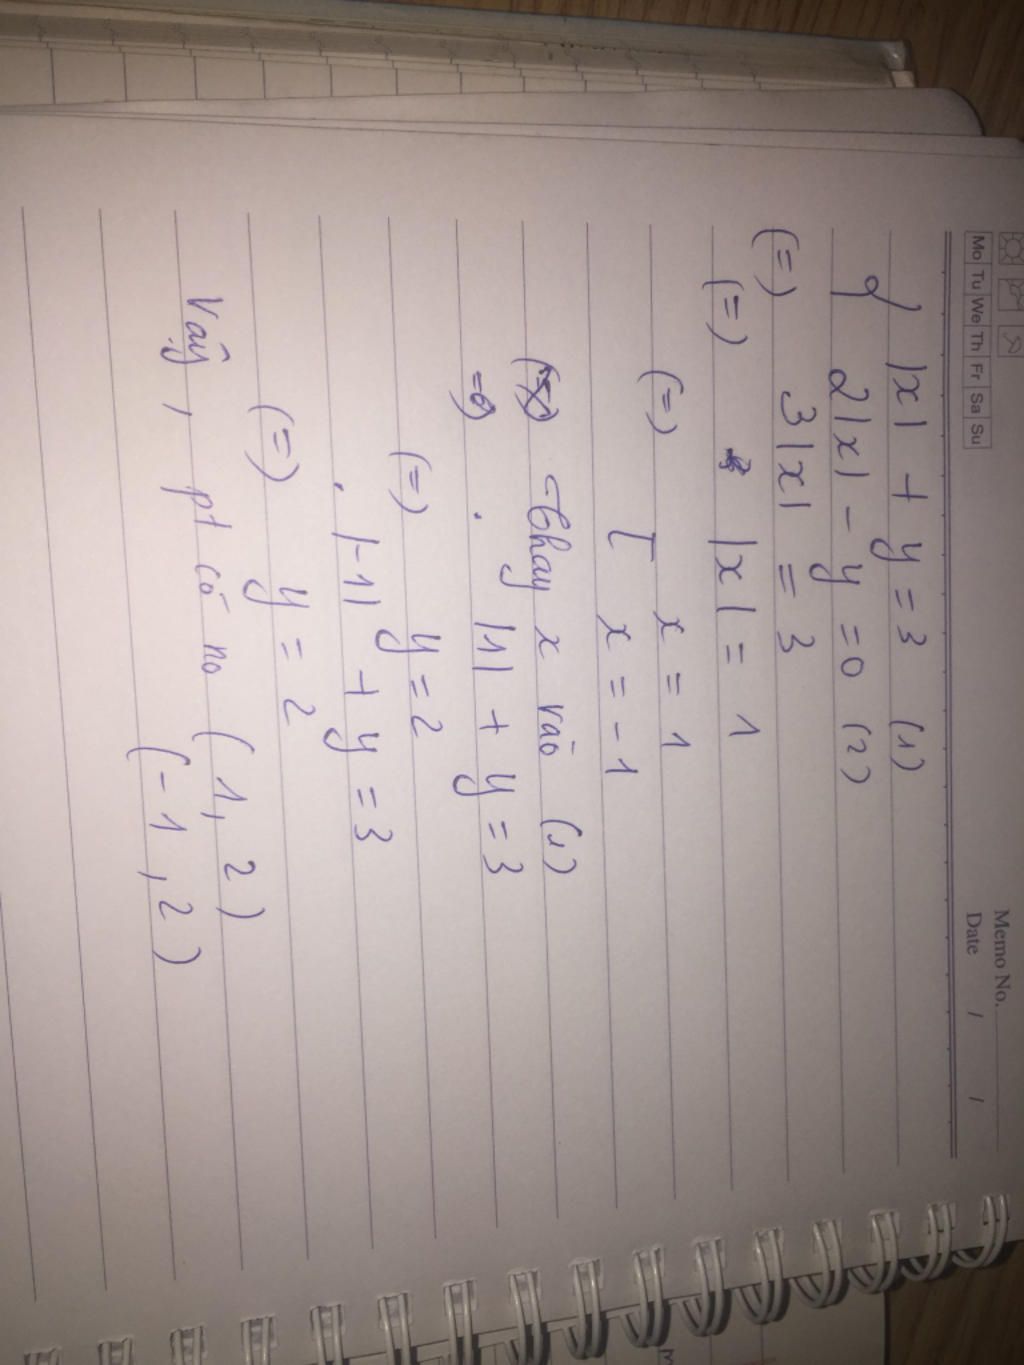 Memo No.
Mo Tu We Th Fr Sa Su
Date / /
|x| + y = 3 (1)
2|x| - y = 0 (2)
(=) 3|x| = 3
(=) |x| = 1
(=) [ x = 1
x = -1
Thay x vào (1)
=> . |1| + y = 3
(=) y = 2
. |-1| + y = 3
(=) y = 2
Vậy, pt có no (1, 2)
(-1, 2)